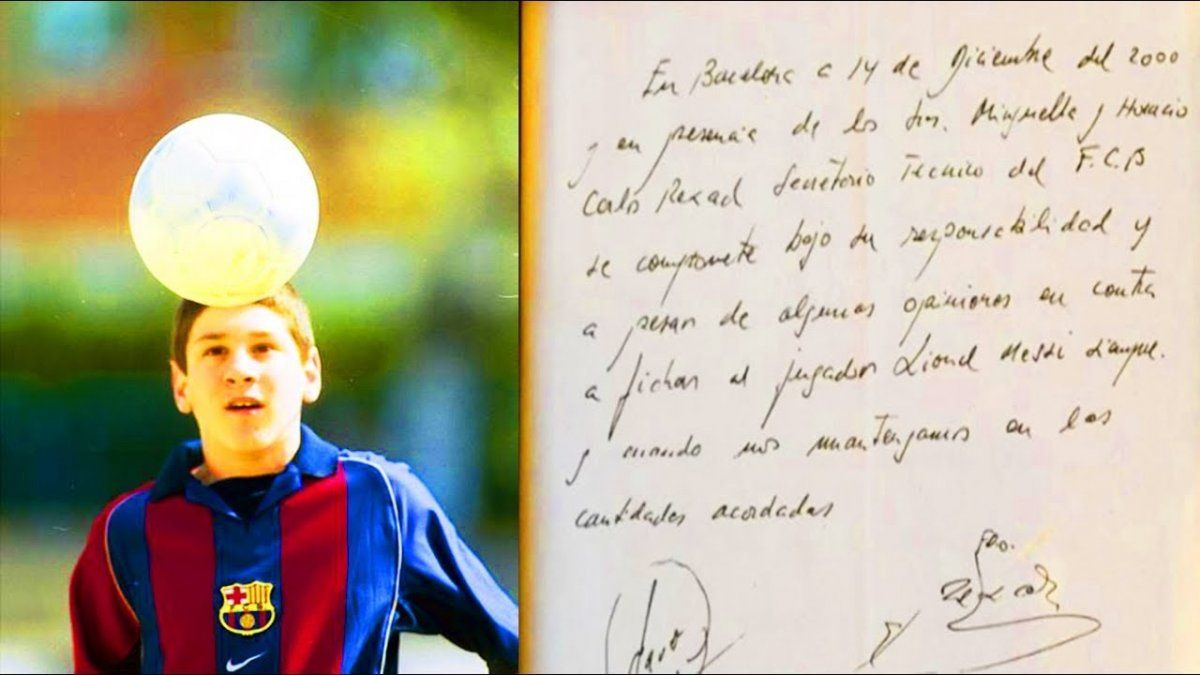 En Barcelona a 14 de Diciembre del 2000
y en presencia de los Srs. Minguella y Horacio
Carlos Rexach Secretario Técnico del F.C.B
se compromete bajo su responsabilidad y
a pesar de algunas opiniones en contra
a fichar al jugador Lionel Messi siempre
y cuando nos mantengamos en las
cantidades acordadas
Fdo.
FCB